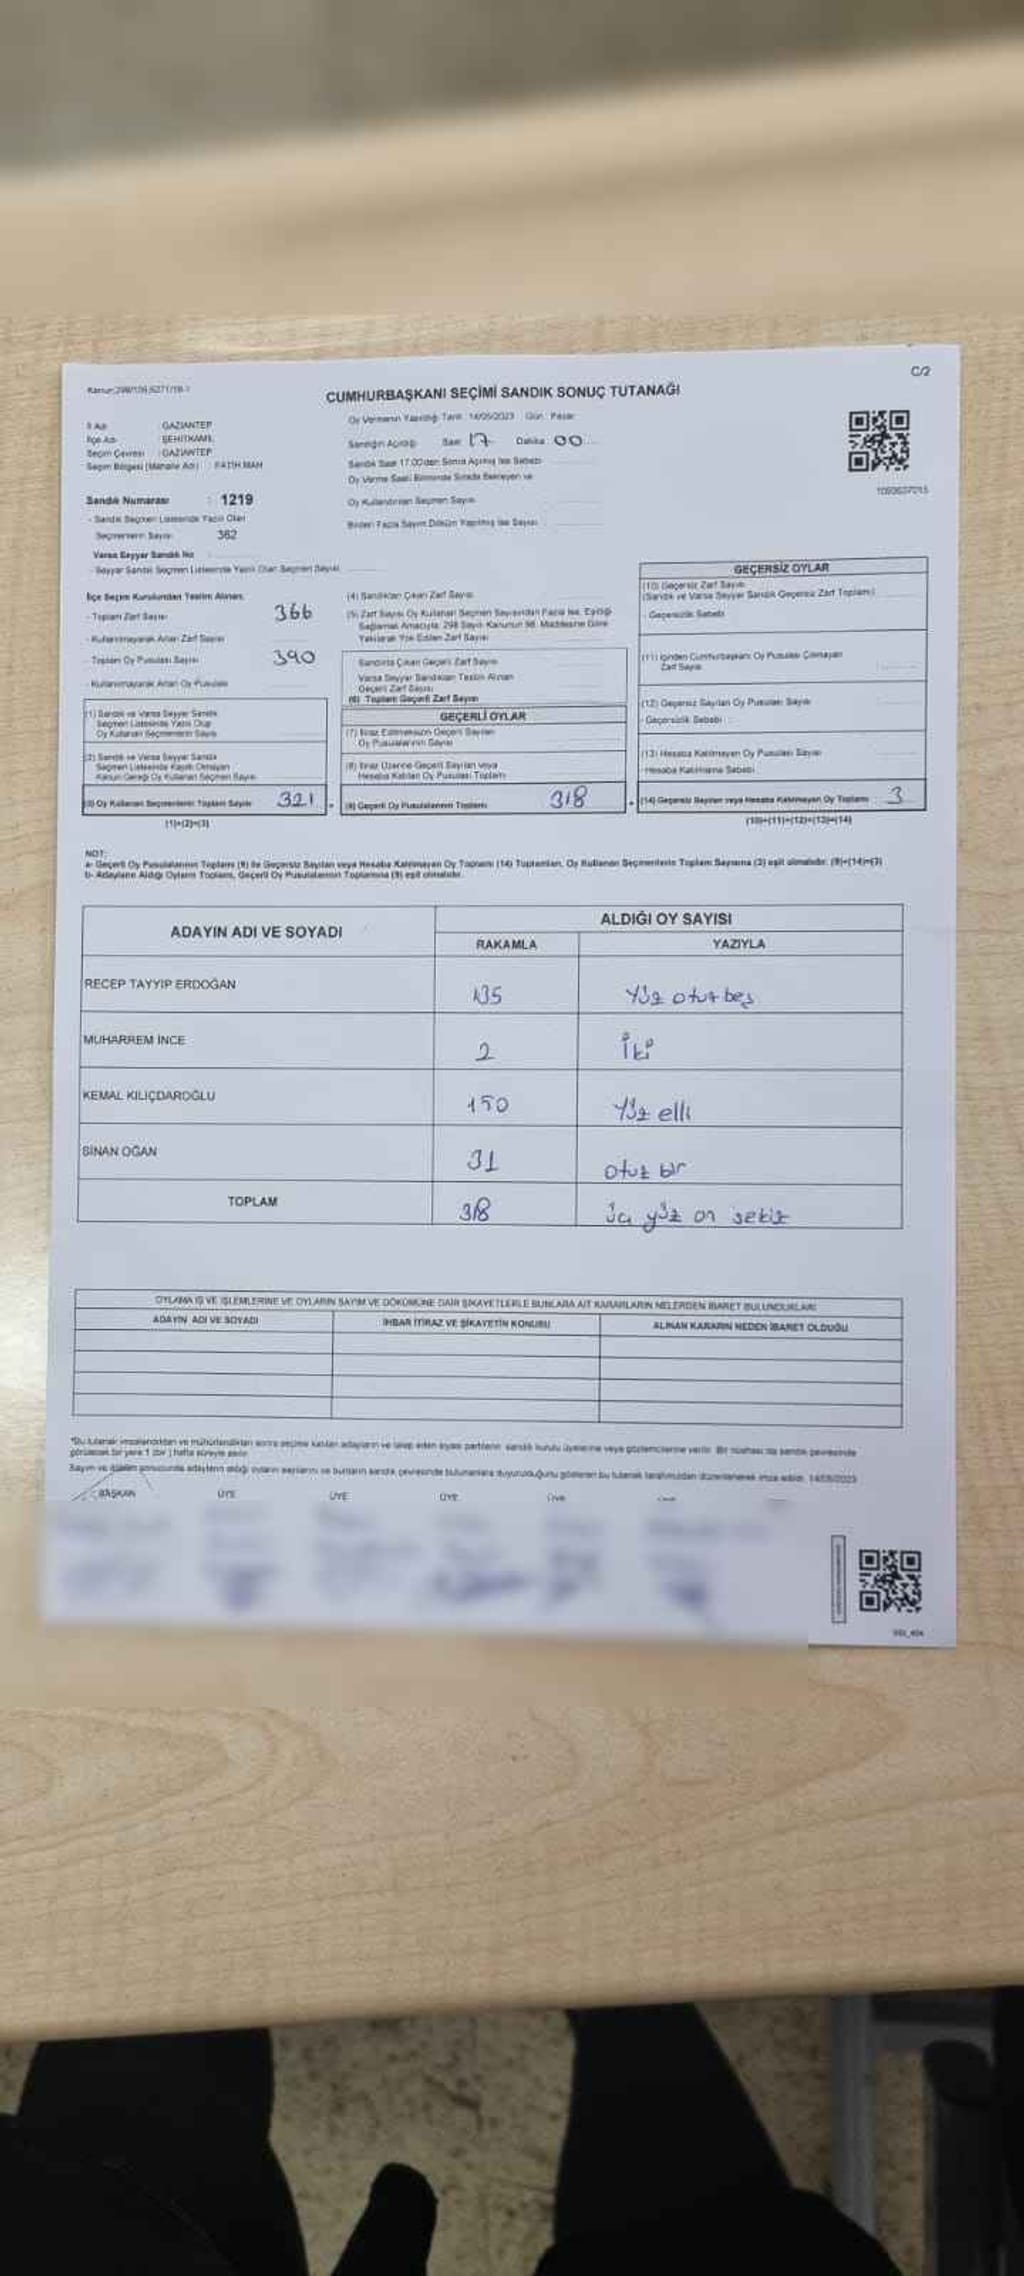 C/2
CUMHURBAŞKANI SEÇİMİ SANDIK SONUÇ TUTANAĞI
İl Adı GAZİANTEP
İlçe Adı ŞEHİTKAMİL
Seçim Çevresi : GAZİANTEP
Seçim Bölgesi (Mahalle Adı) : FATİH MAH
Oy Vermenin Yapıldığı Tarih : 14/05/2023 Gün : Pazar
Sandığın Açıldığı Saat 17 Dakika 00
Sandık Saat 17.00'den Sonra Açılmış İse Sebebi
Oy Verme Saati Bitiminde Sırada Bekleyen ve
Oy Kullandırılan Seçmen Sayısı
Birden Fazla Sayım Döküm Yapılmış İse Sayısı
Sandık Numarası : 1219
- Sandık Seçmen Listesinde Yazılı Olan
Seçmenlerin Sayısı 362
Varsa Seyyar Sandık No
- Seyyar Sandık Seçmen Listesinde Yazılı Olan Seçmen Sayısı
İlçe Seçim Kurulundan Teslim Alınan;
- Toplam Zarf Sayısı 366
- Kullanılmayarak Artan Zarf Sayısı
- Toplam Oy Pusulası Sayısı 390
- Kullanılmayarak Artan Oy Pusulası
(1) Sandık ve Varsa Seyyar Sandık
Seçmen Listesinde Yazılı Olup
Oy Kullanan Seçmenlerin Sayısı
(2) Sandık ve Varsa Seyyar Sandık
Seçmen Listesinde Kayıtlı Olmayan
Kanun Gereği Oy Kullanan Seçmen Sayısı
(3) Oy Kullanan Seçmenlerin Toplam Sayısı 321
(1)+(2)=(3)
(4) Sandıktan Çıkan Zarf Sayısı
(5) Zarf Sayısı Oy Kullanan Seçmen Sayısından Fazla İse, Eşitliği
Sağlamak Amacıyla; 298 Sayılı Kanunun 98. Maddesine Göre
Yakılarak Yok Edilen Zarf Sayısı
Sandıkta Çıkan Geçerli Zarf Sayısı
Varsa Seyyar Sandıktan Teslim Alınan
Geçerli Zarf Sayısı
(6) Toplam Geçerli Zarf Sayısı
GEÇERLİ OYLAR
(7) İtiraz Edilmeksizin Geçerli Sayılan
Oy Pusulalarının Sayısı
(8) İtiraz Üzerine Geçerli Sayılan veya
Hesaba Katılan Oy Pusulası Toplamı
(9) Geçerli Oy Pusulalarının Toplamı 318
GEÇERSİZ OYLAR
(10) Geçersiz Zarf Sayısı
(Sandık ve Varsa Seyyar Sandık Geçersiz Zarf Toplamı)
- Geçersizlik Sebebi
(11) İçinden Cumhurbaşkanı Oy Pusulası Çıkmayan
Zarf Sayısı
(12) Geçersiz Sayılan Oy Pusulası Sayısı
- Geçersizlik Sebebi :
(13) Hesaba Katılmayan Oy Pusulası Sayısı
- Hesaba Katılmama Sebebi
(14) Geçersiz Sayılan veya Hesaba Katılmayan Oy Toplamı 3
(10)+(11)+(12)+(13)=(14)
NOT:
a- Geçerli Oy Pusulalarının Toplamı (9) ile Geçersiz Sayılan veya Hesaba Katılmayan Oy Toplamı (14) Toplamları, Oy Kullanan Seçmenlerin Toplam Sayısına (3) eşit olmalıdır. (9)+(14)=(3)
b- Adayların Aldığı Oyların Toplamı, Geçerli Oy Pusulalarının Toplamına (9) eşit olmalıdır.
ADAYIN ADI VE SOYADI ALDIĞI OY SAYISI
RAKAMLA YAZIYLA
RECEP TAYYİP ERDOĞAN 135 Yüz otuz beş
MUHARREM İNCE 2 İki
KEMAL KILIÇDAROĞLU 150 Yüz elli
SİNAN OĞAN 31 otuz bir
TOPLAM 318 üç yüz on sekiz
OYLAMA İŞ VE İŞLEMLERİNE VE OYLARIN SAYIM VE DÖKÜMÜNE DAİR ŞİKAYETLERLE BUNLARA AİT KARARLARIN NELERDEN İBARET BULUNDUKLARI
ADAYIN ADI VE SOYADI İHBAR İTİRAZ VE ŞİKAYETİN KONUSU ALINAN KARARIN NEDEN İBARET OLDUĞU
*Bu tutanak imzalandıktan ve mühürlendikten sonra seçime katılan adayların ve talep eden siyasi partilerin sandık kurulu üyelerine veya gözlemcilerine verilir. Bir nüshası da sandık çevresinde
görülecek bir yere 1 (bir ) hafta süreyle asılır.
Sayım ve döküm sonucunda adayların aldığı oyların sayılarını ve bunların sandık çevresinde bulunanlara duyurulduğunu gösteren bu tutanak tarafımızdan düzenlenerek imza edildi. 14/05/2023
BAŞKAN ÜYE ÜYE ÜYE